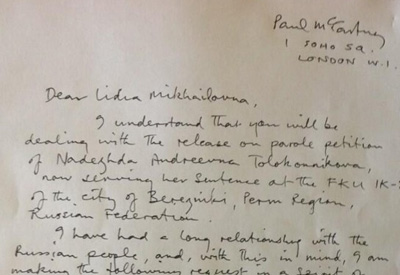 Paul McCartney
1 SOHO SQ.
LONDON W.1.
Dear Lidia Mikhailovna,
I understand that you will be
dealing with the release on parole petition
of Nadeshda Andreevna Tolokonnikova,
now serving her sentence at the FKU IK-
of the city of Berezniki, Perm Region,
Russian Federation.
I have had a long relationship with the
Russian people, and, with this in mind, I am
making the following request in a